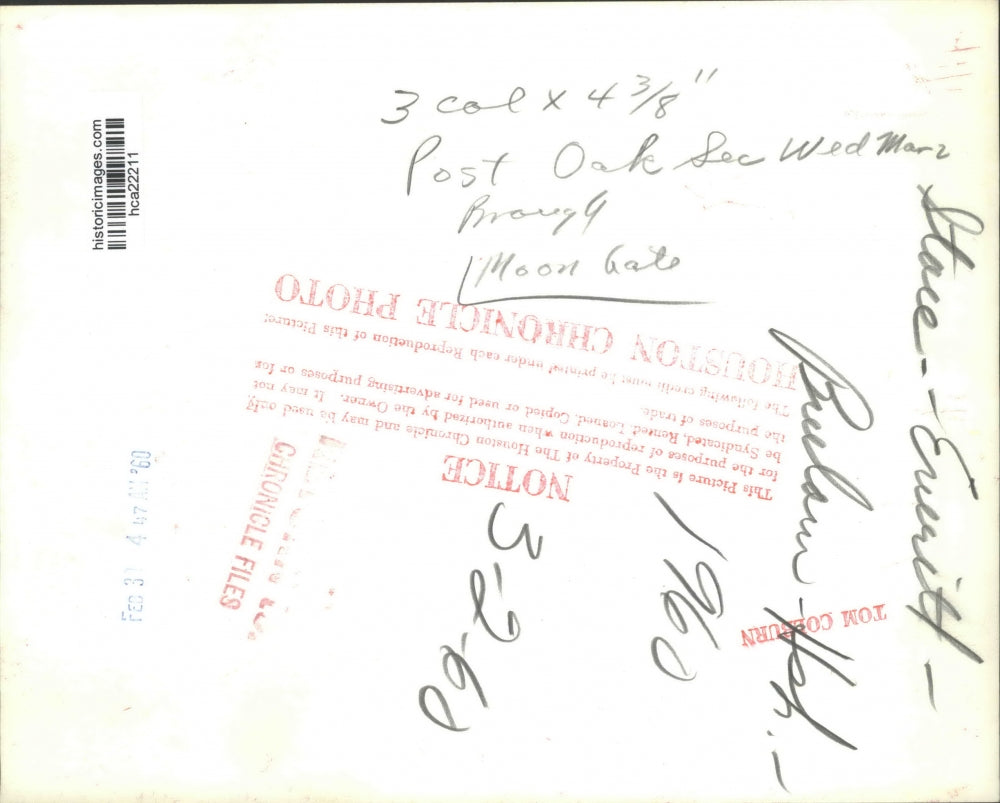 3 col x 4 3/8"
Post Oak Sec Wed Mar 2
Brough
Moon Gate
historicimages.com
hca22211
Stace - Emeritt -
HOUSTON CHRONICLE PHOTO
The following credit must be printed under each Reproduction of this Picture:
NOTICE
This Picture is the Property of The Houston Chronicle and may be used only
for the purposes of reproduction when authorized by the Owner. It may not
be Syndicated, Rented, Loaned, Copied, or used for advertising purposes for or
the purposes of trade.
CHRONICLE FILES
FEB 3 4 47 AM '60
3-2-60
1960
TOM COLBURN